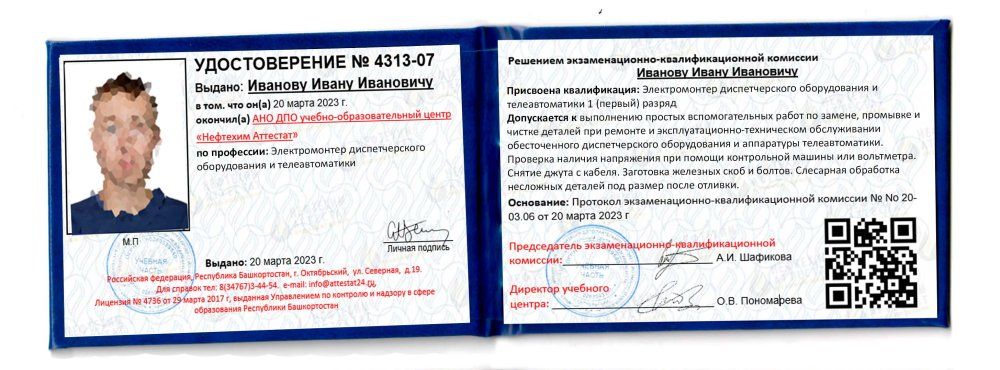 УДОСТОВЕРЕНИЕ № 4313-07
Выдано: Иванову Ивану Ивановичу
в том. что он(а) 20 марта 2023 г.
окончил(а) АНО ДПО учебно-образовательный центр
«Нефтехим Аттестат»
по профессии: Электромонтер диспетчерского
оборудования и телеавтоматики
М.П
Личная подпись
УЧЕБНАЯ
ЧАСТЬ
Выдано: 20 марта 2023 г.
Российская федерация, Республика Башкортостан, г. Октябрьский, ул. Северная, д.19.
Для справок тел: 8(34767)3-44-54. e-mail: info@attestat24.ru,
Лицензия № 4736 от 29 марта 2017 г, выданная Управлением по контролю и надзору в сфере
образования Республики Башкортостан
Решением экзаменационно-квалификационной комиссии
Иванову Ивану Ивановичу
Присвоена квалификация: Электромонтер диспетчерского оборудования и
телеавтоматики 1 (первый) разряд
Допускается к выполнению простых вспомогательных работ по замене, промывке и
чистке деталей при ремонте и эксплуатационно-техническом обслуживании
обесточенного диспетчерского оборудования и аппаратуры телеавтоматики.
Проверка наличия напряжения при помощи контрольной машины или вольтметра.
Снятие джута с кабеля. Заготовка железных скоб и болтов. Слесарная обработка
несложных деталей под размер после отливки.
Основание: Протокол экзаменационно-квалификационной комиссии № No 20-
03.06 от 20 марта 2023 г
Председатель экзаменационно-квалификационной
комиссии: А.И. Шафикова
УЧЕБНАЯ
ЧАСТЬ
Директор учебного
центра: О.В. Пономарева